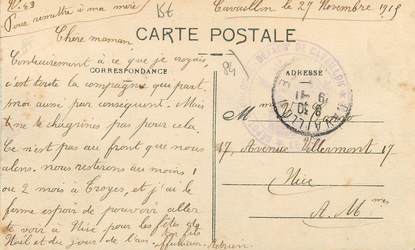 N. 63
Pour remettre à ma mère
Cavaillon le 27 Novembre 1915
Chère maman
CARTE POSTALE
CORRESPONDANCE
ADRESSE
Contrairement à ce que je croyais,
c'est toute la compagnie que part,
moi aussi par conséquent. Mais
ne te chagrines pas pour cela.
Ce n'est pas au front que nous
alons. nous resterons au moins 1
ou 2 mois à Troyes, et j'ai le
ferme espoir de pouvoir aller
te voir à Nice pour les fêtes de
Noël et du jour de l'an. Ton fils
affectueux Adrien
84
CAVAILLON
M
17, Avenue Villermont 17
Nice
A. Mmes